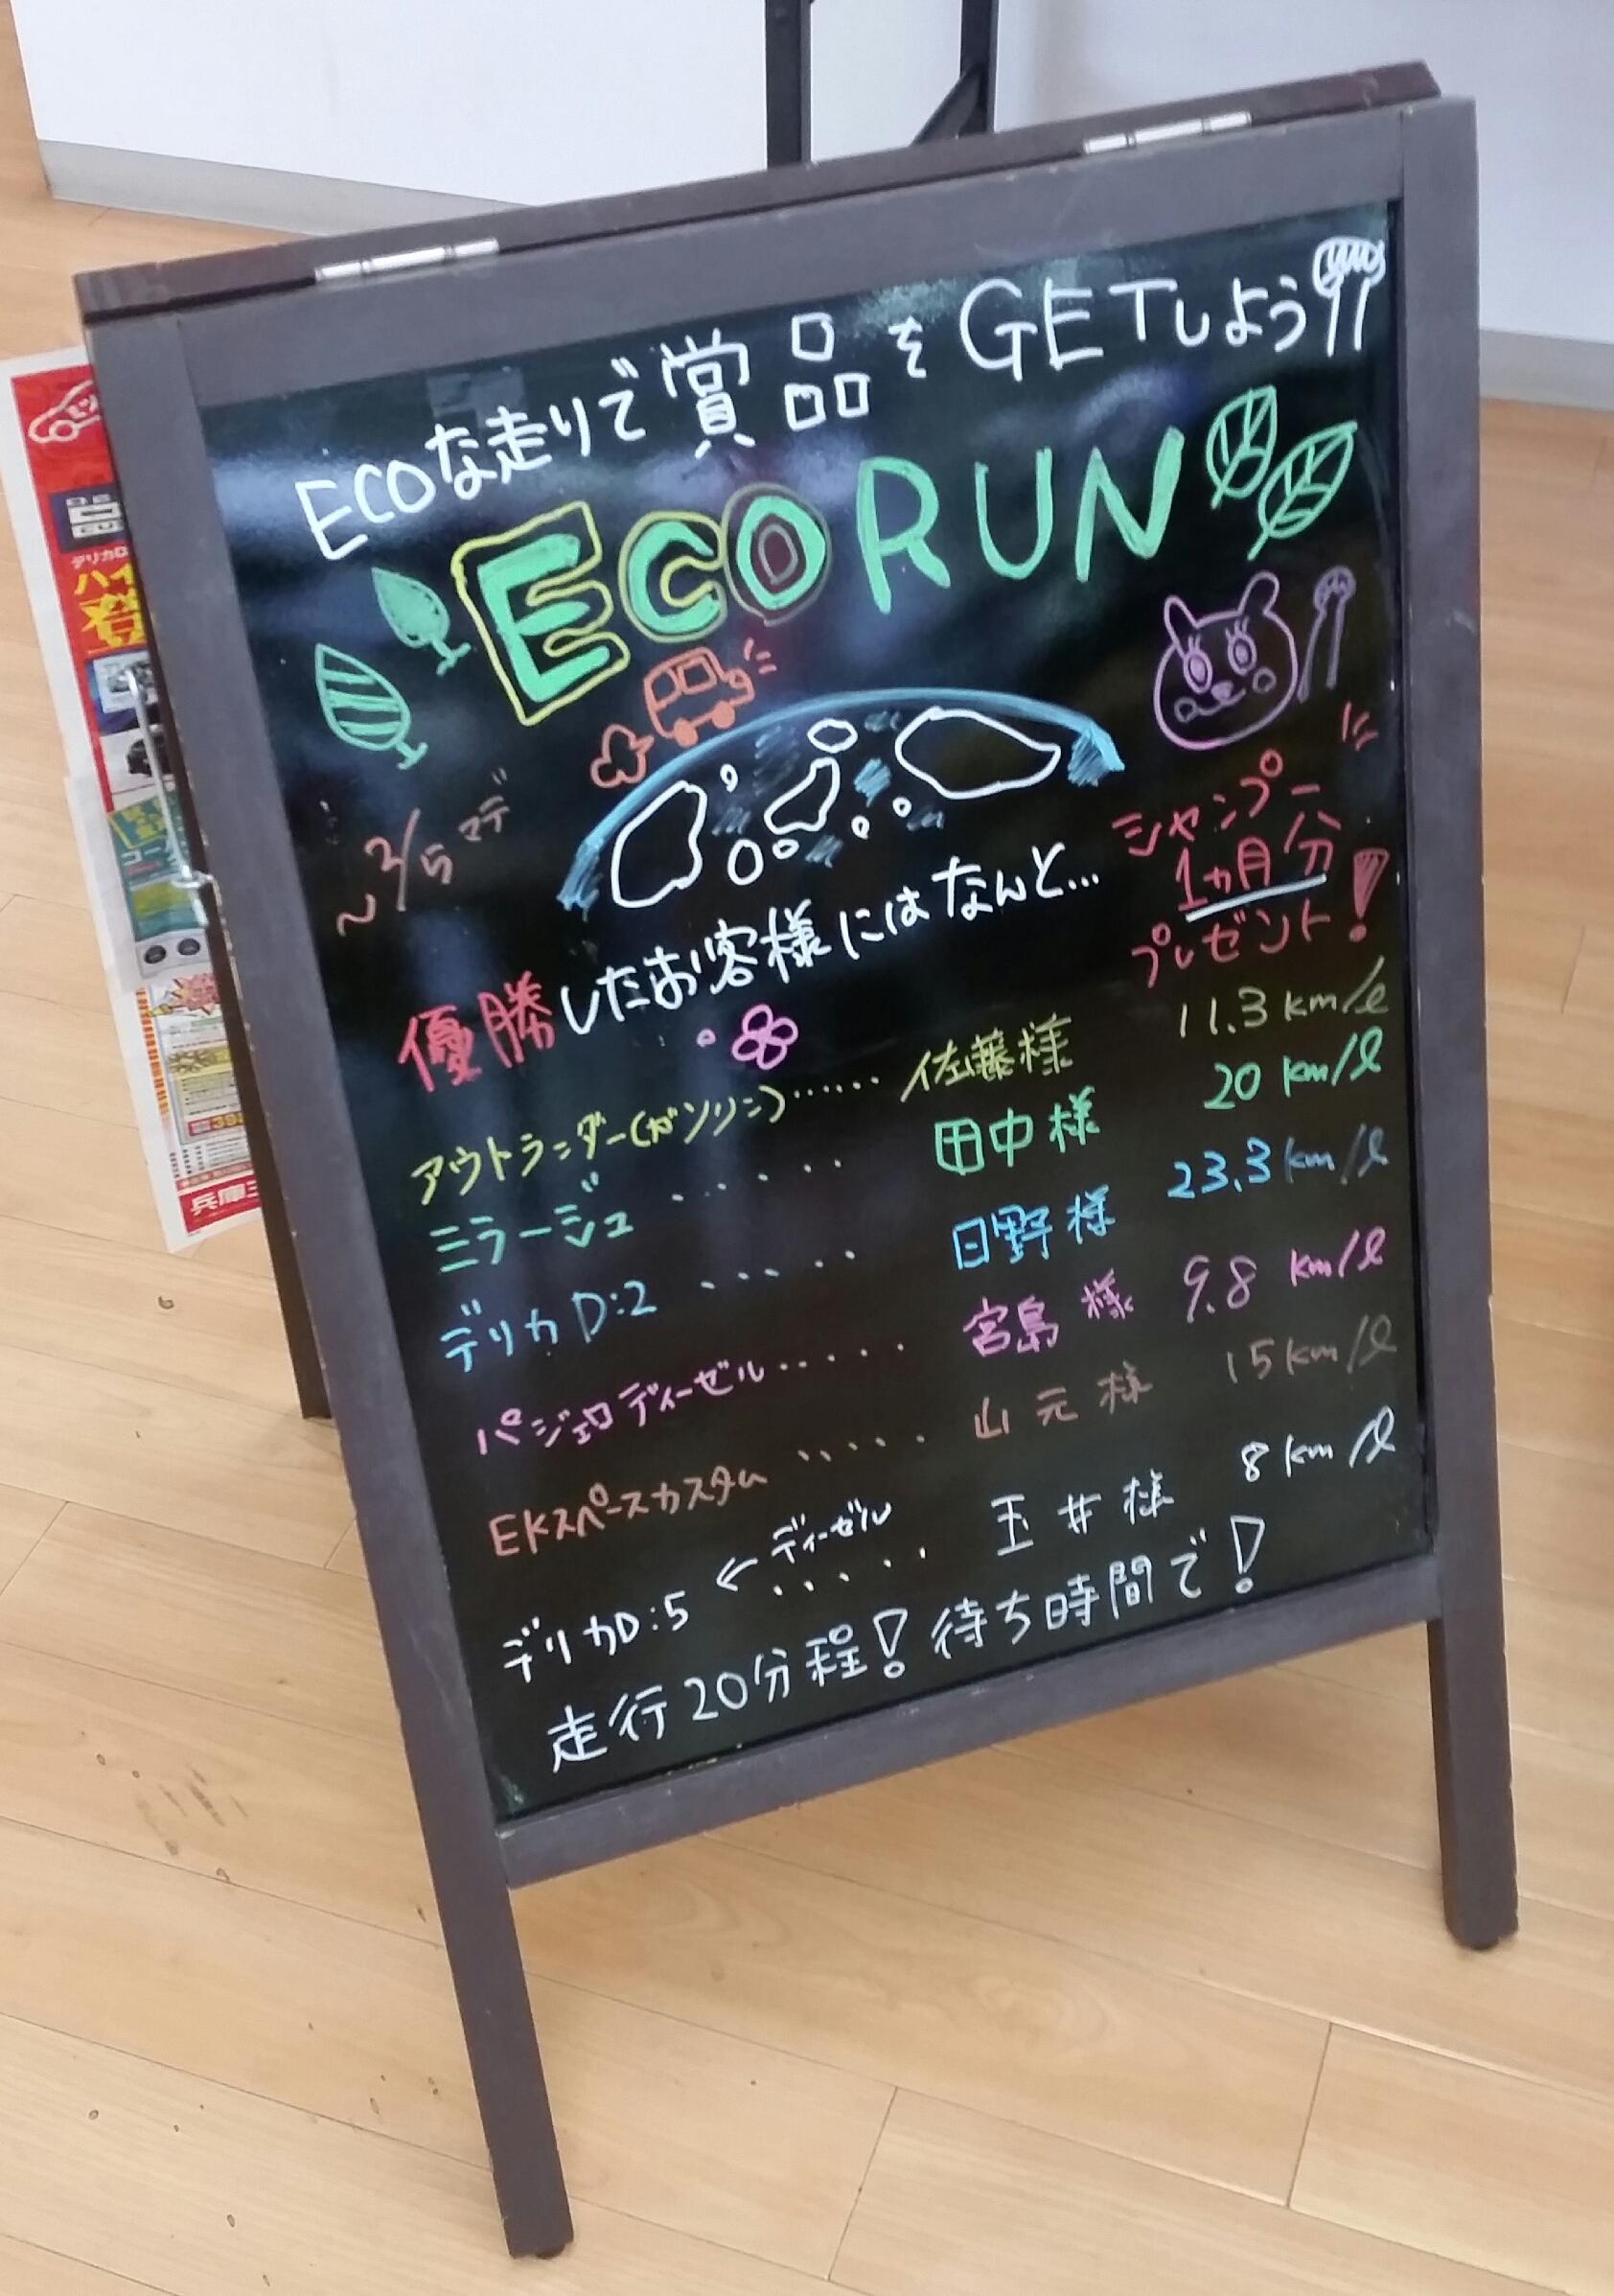 ECOな走りで賞品をGETしよう!!
ECO RUN
~3/5マデ
シャンプー
1ヵ月分
プレゼント!
優勝したお客様にはなんと…
アウトランダー(ガソリン)…… 佐藤様 11.3 km/ℓ
ミラージュ ...... 田中様 20 km/ℓ
デリカD:2 ...... 日野様 23.3 km/ℓ
パジェロディーゼル ...... 宮島様 9.8 km/ℓ
EKスペースカスタム ...... 山元様 15 km/ℓ
デリカD:5 ←ディーゼル ...... 玉井様 8 km/ℓ
走行20分程!待ち時間で!
デリカD
ハイ
登
コー
兵庫三